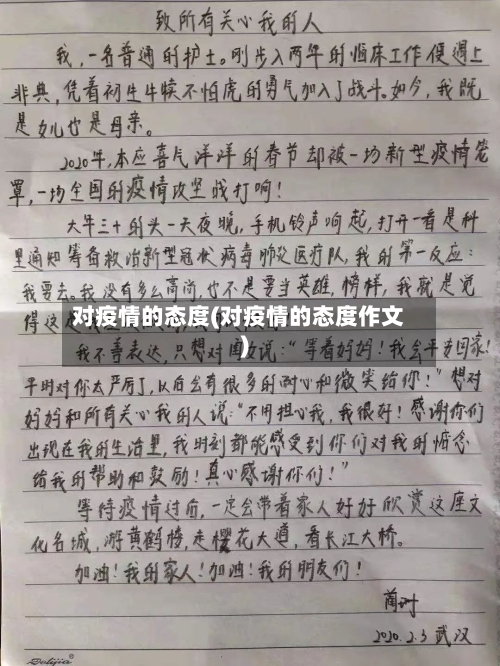 致所有关心我的人
我,一名普通的护士。刚步入两年的临床工作便遇上
非典,凭着初生牛犊不怕虎的勇气加入了战斗。如今,我既
是女儿也是母亲。
2020年,本应喜气洋洋的春节却被一场新型疫情笼
罩,一场全国的疫情攻坚战打响!
大年三十的头一天夜晚,手机铃声响起,打开一看是科
里通知筹备救治新型冠状病毒肺炎医疗队,我的第一反应:
我要去。我没有多么高尚,也不是要当英雄,榜样,我就是觉
得这
对疫情的态度(对疫情的态度作文
)
我不善表达,只想对女说:“等着妈妈!我会平安回家!
平时对你太严厉了,以后会有很多的耐心和微笑给你!”想对
妈妈和所有关心我的人说:“不用担心我,我很好!感谢你们
出现在我的生活里,我时刻都能感受到你们对我的惦念
给我的帮助和鼓励!真心感谢你们!”
等待疫情过后,一定会带着家人好好欣赏这座文
化名城,游黄鹤楼,走樱花大道,看长江大桥。
加油!我的家人!加油!我的朋友们!
2020.2.3 武汉